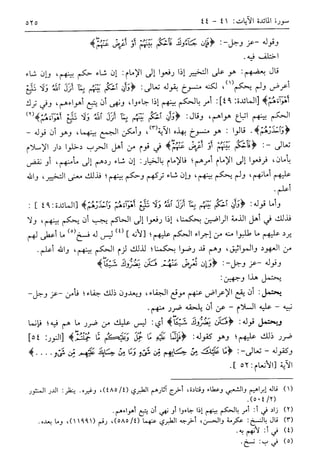 سورة المائدة الآيات: ٤١ - ٤٤
٥٢٥
وقوله - عز وجل-: ﴿فإن جاءوك فاحكم بينهم أو أعرض عنهم﴾
اختلف فيه.
قال بعضهم: هو على التخيير إذا رفعوا إلى الإمام: إن شاء حكم بينهم، وإن شاء
أعرض ولم يحكم(١)، لكنه منسوخ بقوله تعالى: ﴿وأن احكم بينهم بما أنزل الله ولا تتبع
أهواءهم﴾ [المائدة: ٤٩]: أمر بالحكم بينهم إذا جاءوا، ونهى أن يتبع أهواءهم، وفي ترك
الحكم بينهم اتباع هواهم، وقال: ﴿وأن احكم بينهم بما أنزل الله ولا تتبع أهواءهم(٢)
واحذرهم﴾. قالوا: هو منسوخ بهذه الآية(٣)، وأمكن الجمع بينهما، وهو أن قوله -
تعالى -: ﴿فاحكم بينهم أو أعرض عنهم﴾ في قوم من أهل الحرب دخلوا دار الإسلام
بأمان، فرفعوا إلى الإمام أمرهم؛ فالإمام بالخيار: إن شاء ردهم إلى مأمنهم، أو نقض
عليهم أمانهم، ولم يحكم بينهم، وإن شاء تركهم وحكم بينهم؛ فذلك معنى التخيير، والله
أعلم.
وأما قوله: ﴿وأن احكم بينهم بما أنزل الله ولا تتبع أهواءهم واحذرهم﴾ [المائدة: ٤٩]:
فذلك في أهل الذمة الراضين بحكمنا، إذا رفعوا إلى الحاكم يجب أن يحكم بينهم، ولا
يرد عليهم ما طلبوا منه من إجراء الحكم عليهم؛ [لأنه](٤) ليس له فسخ(٥) ما أعطى لهم
من العهود والمواثيق، وهم قد رضوا بحكمنا؛ لذلك لزم الحكم بينهم، والله أعلم.
وقوله - عز وجل-: ﴿وإن تعرض عنهم فلن يضروك شيئا﴾
يحتمل هذا وجهين:
يحتمل: أن يقع الإعراض عنهم موقع الجفاء، ويعدون ذلك جفاء؛ فأمن -عز وجل-
نبيه - عليه السلام - عن أن يلحقه ضرر منهم.
ويحتمل قوله: ﴿فلن يضروك شيئا﴾ أي: ليس عليك من ضرر ما هم فيه؛ فإنما
ضرر ذلك عليهم؛ وهو كقوله: ﴿فإنما عليه ما حمل وعليكم ما حملتم﴾ [النور: ٥٤]
وكقوله - تعالى-: ﴿ما عليك من حسابهم من شيء وما من حسابك عليهم من شيء....﴾
الآية [الأنعام: ٥٢].
(١) قاله إبراهيم والشعبي وعطاء وقتادة، أخرج آثارهم الطبري (٤/٤٨٥)، وغيره. ينظر: الدر المنثور
(٢/٥٠٤).
(٢) زاد في أ: أمر بالحكم بينهم إذا جاءوا أو نهى أن يتبع أهواءهم.
(٣) قال بالنسخ: عكرمة والحسن، أخرجه الطبري عنهما (٤/٥٨٥)، رقم (١١٩٩١)، وما بعده.
(٤) في أ: لأنهم به.
(٥) في ب: نسخ.